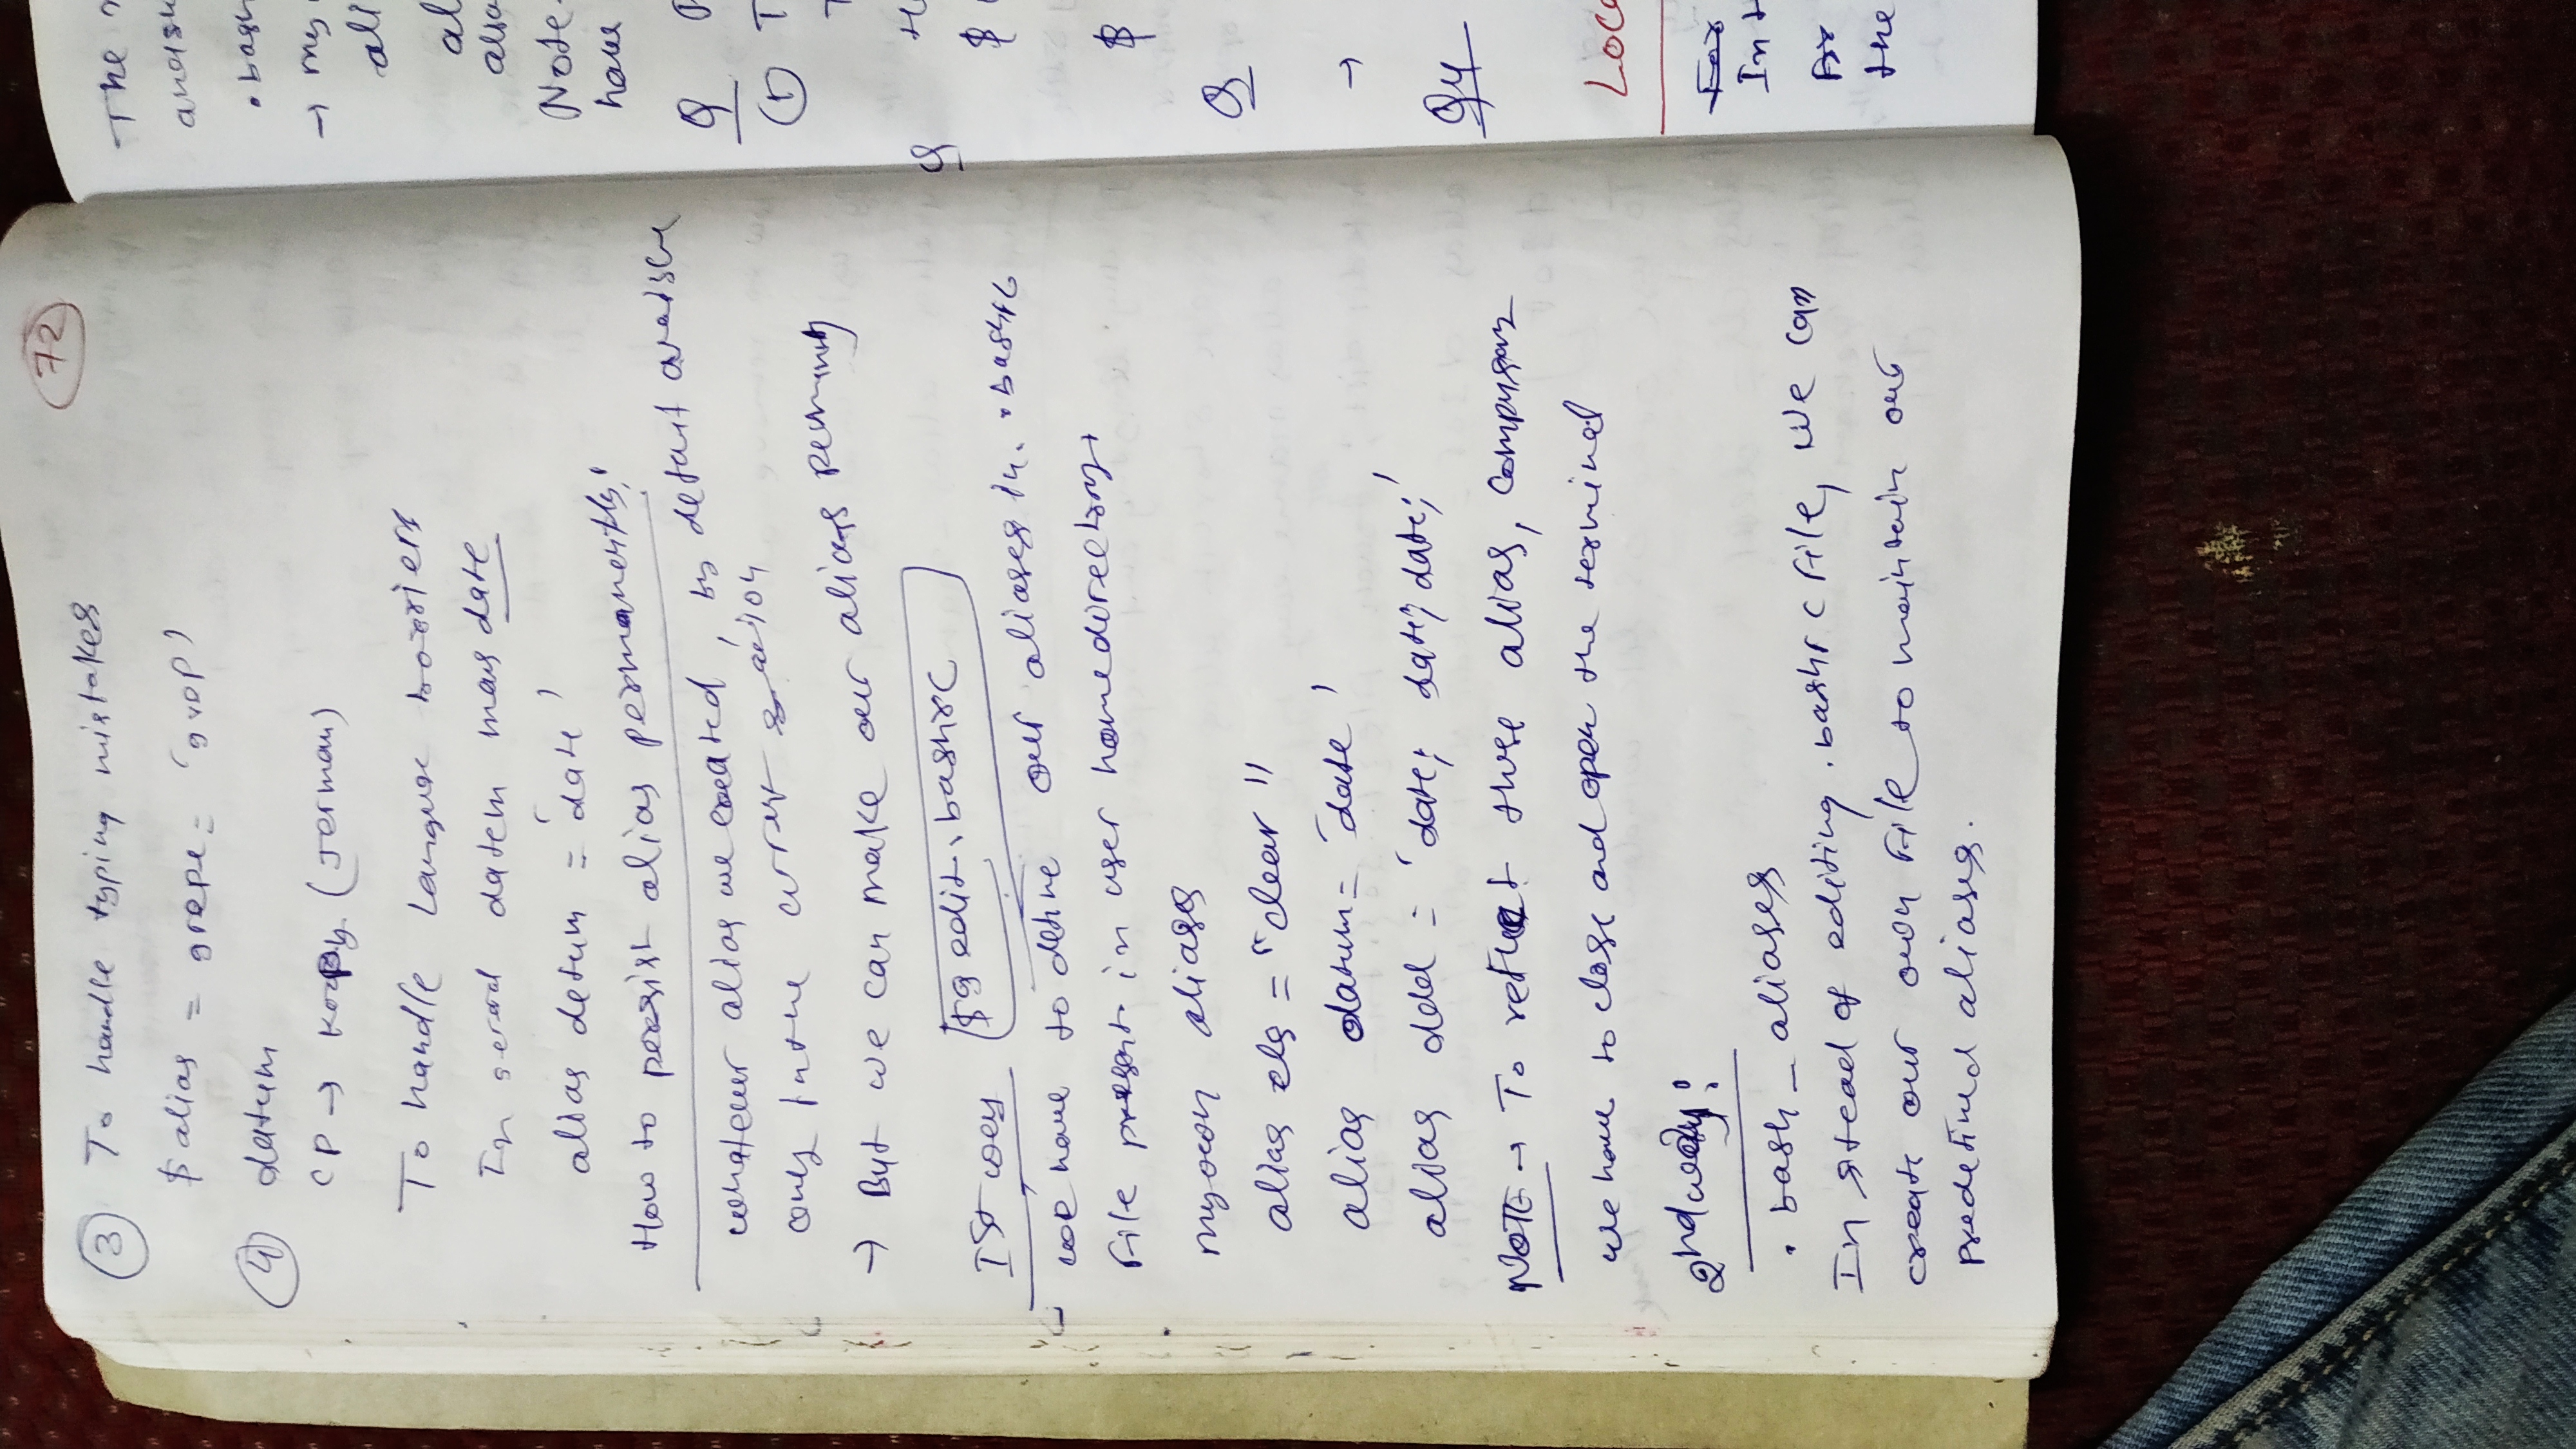 72
③ To handle typing mistakes
$ alias = grepe = 'grep'
④ datum
CP → (Jerman)
To handle barriers
In datem date
alias detum = 'date'
How to persist alias permanently!
whatever alias we created, by default
only in the current
→ But we can make our alias
Ist way $gedit .bashrc
we have to define our aliases in. .bashrc
File present in user homedirectory
my own aliases
alias cls = "clear"
alias datum = 'date'
alias ddd = 'date; date; date;'
NOTE → To reflect these alias,
we have to close and open the terminal
2nd way:
.bash_aliases
In stead of editing .bashrc file, we can
create our own File to maintain our
predefined aliases.
The
. bash
→ my
Note
have
Q
①
Q
$
$
Q
→
Q4
In
the